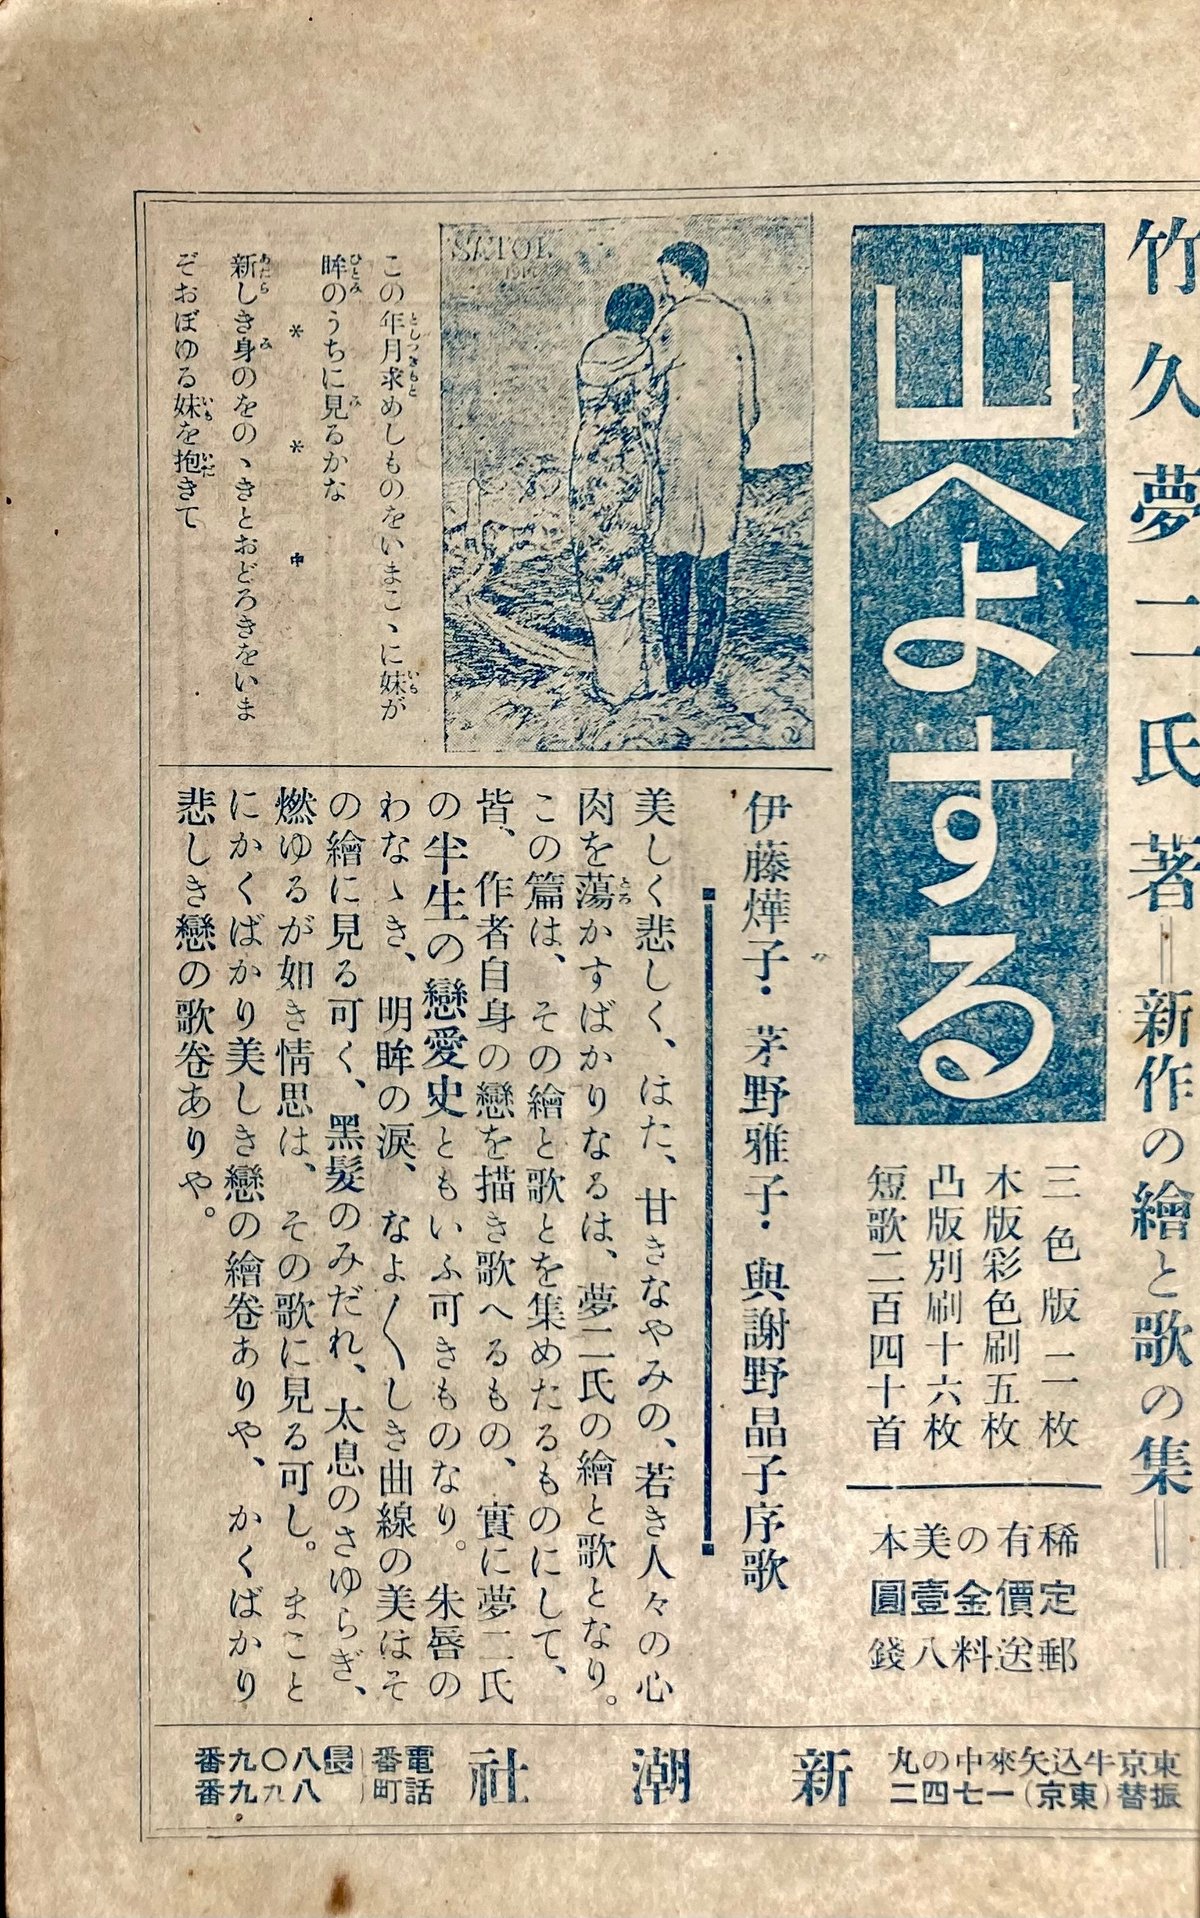 竹久夢二氏著＝新作の繪と歌の集＝
山へよする
三色版二枚
木版彩色刷五枚
凸版別刷十六枚
短歌二百四十首
稀有の美本
定價金壹圓
郵送料八錢
伊藤燁子・茅野雅子・與謝野晶子序歌
この年月求めしものをいまこゝに妹が
眸のうちに見るかな
＊　＊　＊
新しき身のをのゝきとおどろきをいま
ぞおぼゆる妹を抱きて
美しく悲しく、はた、甘きなやみの、若き人々の心
肉を蕩かすばかりなるは、夢二氏の繪と歌となり。
この篇は、その繪と歌とを集めたるものにして、
皆、作者自身の戀を描き歌へるもの、實に夢二氏
の半生の戀愛史ともいふ可きものなり。朱唇の
わなゝき、明眸の涙、なよ〱しき曲線の美はそ
の繪に見る可く、黑髮のみだれ、太息のさゆらぎ、
燃ゆるが如き情思は、その歌に見る可し。まこと
にかくばかり美しき戀の繪卷ありや、かくばかり
悲しき戀の歌卷ありや。
東京牛込矢來中の丸
振替(東京)一七四二
新潮社
電話番町
長八〇九番
八九九番